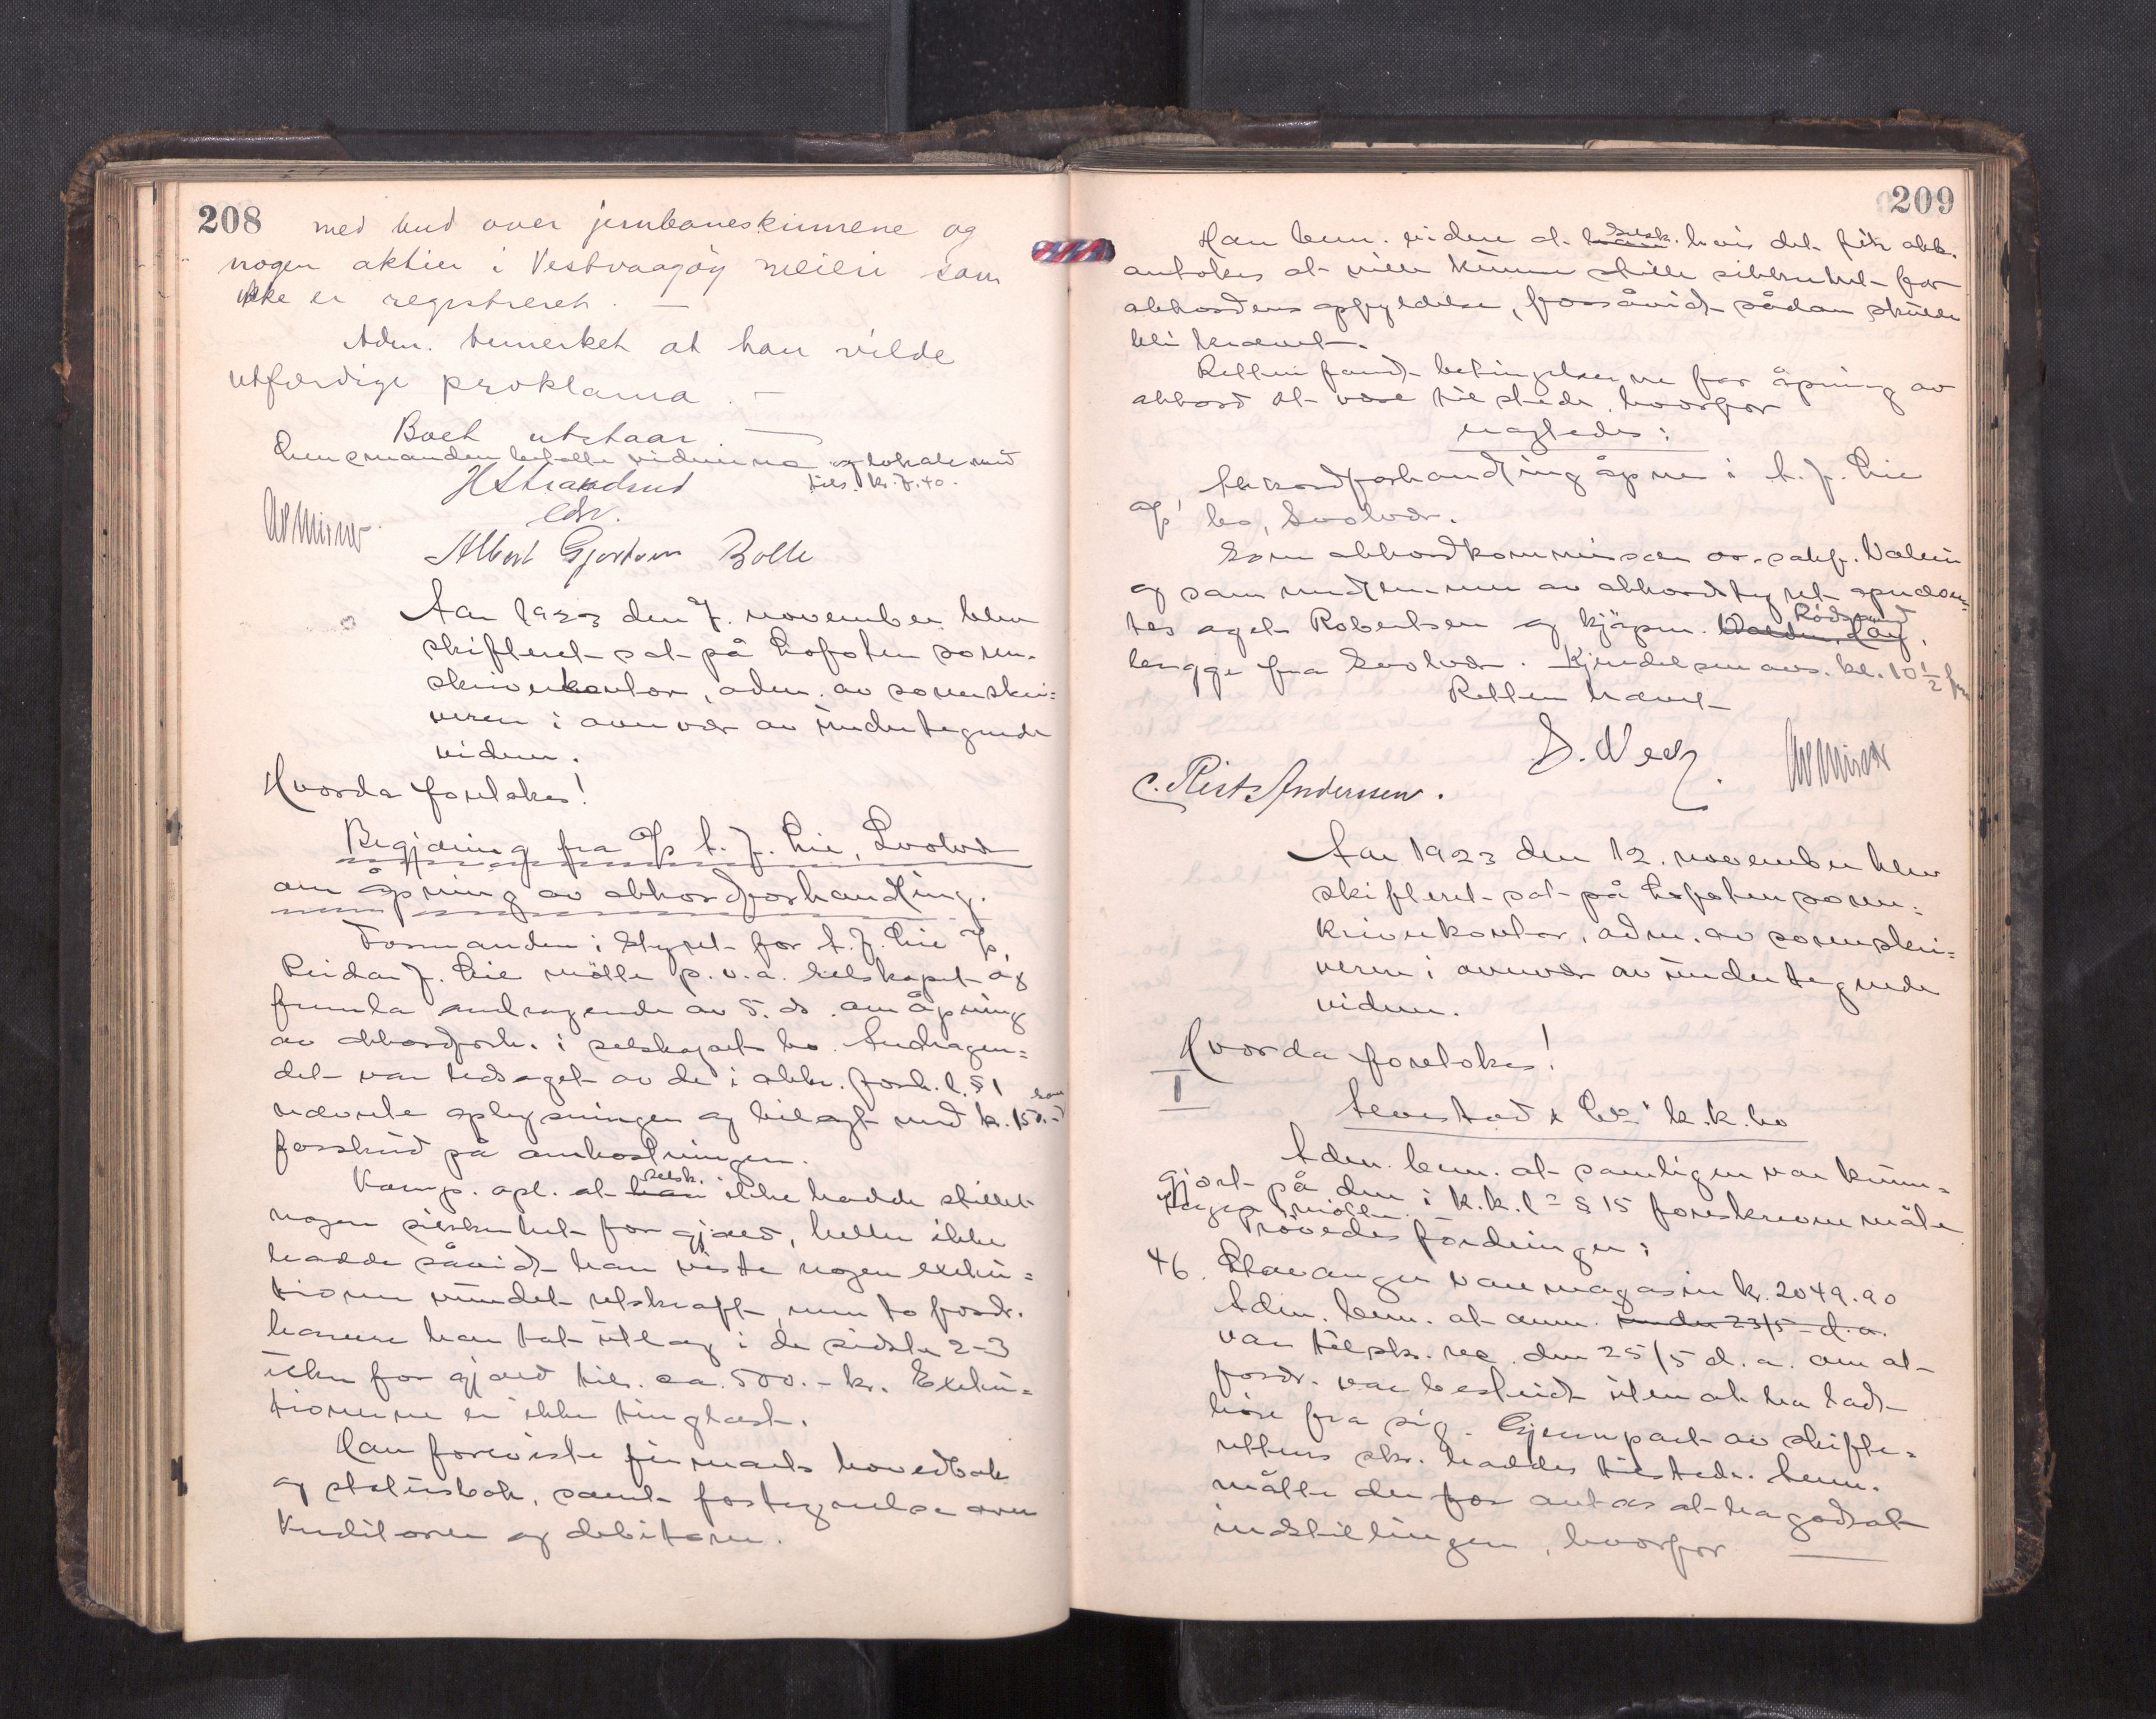 208
med bud over jernbaneskinnene og
nogen aktier i Vestvaagøy meieri som
ikke er registreret. —
Adm. bemerket at han vilde
utfærdige proklama. —
Boet utstaar. —
Lensmanden betalte vidnerne og lokale med
tils. kr. 7.40.
H Strandrud
edsv.
Albert Gjertsen Bolle
Aar 1923 den 7. november blev
skifteret sat på Lofoten soren-
skriverkontor, adm. av sorenskri-
veren i overvær av undertegnede
vidner.
Hvorda foretokes!
Begjæring fra A/S A. J. Lie, Svolvær
om åpning av akkordforhandling.
Formanden i styret for A. J. Lie A/S
Reidar J. Lie møtte p. v. a. selskapet og
fremla andragende av 5. ds. om åpning
av akkordforh. i selskapets bo. Andragen-
det var ledsaget av de i akk. forh. l. § 1
nævnte oplysninger og bilagt med kr. 150.- som
forskud på omkostningen.
Komp. opl. at han selsk. ikke hadde stillet
nogen sikkerhet for gjæld, heller ikke
hadde såvidt han visste nogen exeku-
tioner vundet retskraft, men to fordr.
haverne har tat utlæg i de sidste 2-3
uker for gjæld til. ca. 500.- kr. Exeku-
tionerne er ikke tinglæst.
Han foreviste firmaets hovedbok
og statusbok, samt fortegnelse over
kreditorer og debitorer.
209
Han bem. videre at han selsk. hvis det fik akk.
antokes at ville kunne stille sikkerhet for
akkordens opfyldelse, forsåvidt sådan skulde
bli krævet.
Retten fandt betingelserne for åpning av
akkord at være tilstede, hvorfor
avgjordes:
Akkordforhandling åpnes i A. J. Lie
A/S' bo, Svolvær.
Som akkordkommissær o.r.sakf.
og som medlemmer av akkordstyret opnævn-
tes agent Robertsen og kjøpm. Rödsand
begge fra Svolvær. Kjendelsen avs. kl. 10 1/2 fm
Retten hævet
C. Rist Anderssen.
Aar 1923 den 12. november blev
skifteret sat på Lofoten soren-
skriverkontor, adm. av sorenskri-
veren i overvær av undertegnede
vidner.
Hvorda foretokes!
I
Alvestad & Co's k.k.bo
Adm. bem. at samlingen var kunn-
gjort på den i k.k.l. § 15 foreskrevne måte
Ingen møtte.
Prövedes fordringer:
46. Stavanger varemagasin kr. 2049.90
Adm. bem. at anm. under 23/5 d.a.
var tilskr. rec. den 25/5 d.a. om at
fordr. var bestridt uten at ha ladt
höre fra sig. Gjenpart av skifte-
rettens skr. haddes tilstede. Anm.
måtte derfor antas at ha godtat
indstillingen, hvorfor —